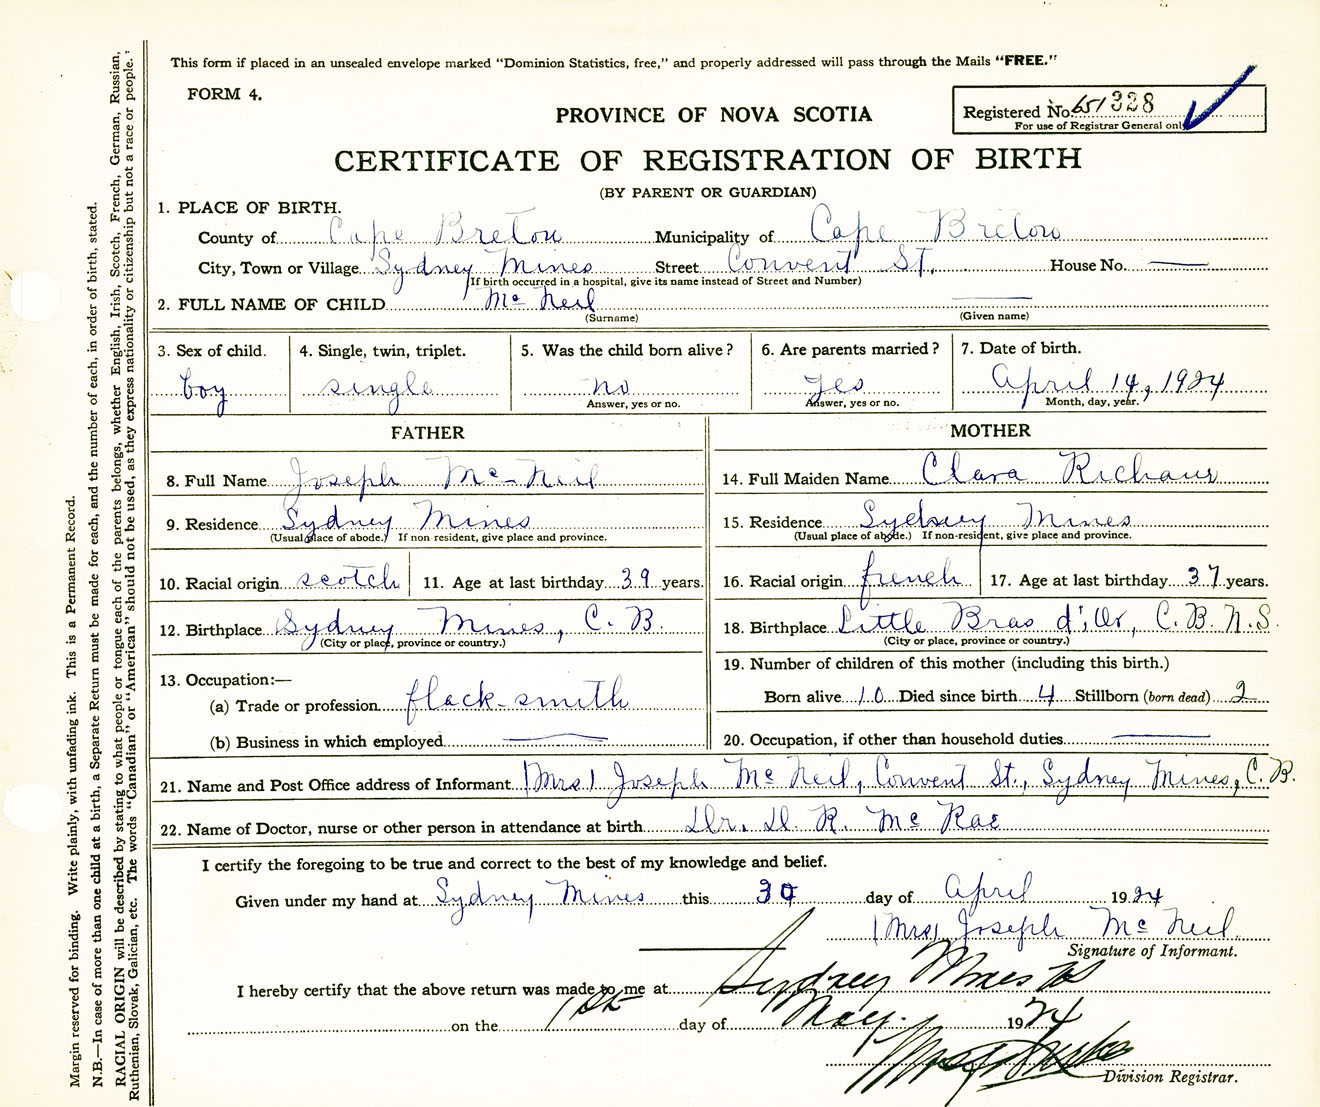 This form if placed in an unsealed envelope marked "Dominion Statistics, free," and properly addressed will pass through the Mails "FREE."
FORM 4.
PROVINCE OF NOVA SCOTIA
Registered No. 651328
For use of Registrar General only
CERTIFICATE OF REGISTRATION OF BIRTH
(BY PARENT OR GUARDIAN)
1. PLACE OF BIRTH.
County of Cape Breton Municipality of Cape Breton
City, Town or Village Sydney Mines Street Convent St. House No. —
(If birth occurred in a hospital, give its name instead of Street and Number)
2. FULL NAME OF CHILD Mc Neil —
(Surname) (Given name)
3. Sex of child. 4. Single, twin, triplet. 5. Was the child born alive? 6. Are parents married? 7. Date of birth.
boy single no yes April 14, 1924
Answer, yes or no. Answer, yes or no. Month, day, year.
FATHER
8. Full Name Joseph Mc-Neil
9. Residence Sydney Mines
(Usual place of abode.) If non-resident, give place and province.
10. Racial origin scotch 11. Age at last birthday 39 years.
12. Birthplace Sydney Mines, C. B.
(City or place, province or country.)
13. Occupation:—
(a) Trade or profession flack-smith
(b) Business in which employed —
MOTHER
14. Full Maiden Name Clara
15. Residence Sydney Mines
(Usual place of abode.) If non-resident, give place and province.
16. Racial origin french 17. Age at last birthday 37 years.
18. Birthplace Little Bras d'Or, C. B. N.S.
(City or place, province or country.)
19. Number of children of this mother (including this birth.)
Born alive 10 Died since birth 4 Stillborn (born dead) 2
20. Occupation, if other than household duties —
21. Name and Post Office address of Informant (Mrs) Joseph Mc Neil, Convent St., Sydney Mines, C. B.
22. Name of Doctor, nurse or other person in attendance at birth Dr. D. R. Mc Rae
I certify the foregoing to be true and correct to the best of my knowledge and belief.
Given under my hand at Sydney Mines this 30 day of April 1924
(Mrs) Joseph Mc Neil
Signature of Informant.
I hereby certify that the above return was made to me at Sydney Mines
on the 1st day of May 1924
Division Registrar.
Margin reserved for binding. Write plainly, with unfading ink. This is a Permanent Record.
N.B.—In case of more than one child at a birth, a Separate Return must be made for each, and the number of each, in order of birth, stated.
RACIAL ORIGIN will be described by stating to what people or tongue each of the parents belongs, whether English, Irish, Scotch, French, German, Russian,
Ruthenian, Slovak, Galician, etc. The words "Canadian" or "American" should not be used, as they express nationality or citizenship but not a race or people.